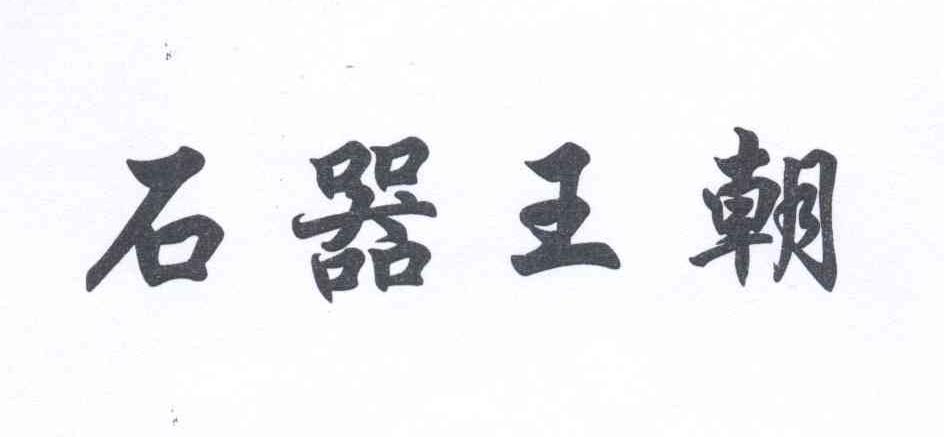 石器王朝